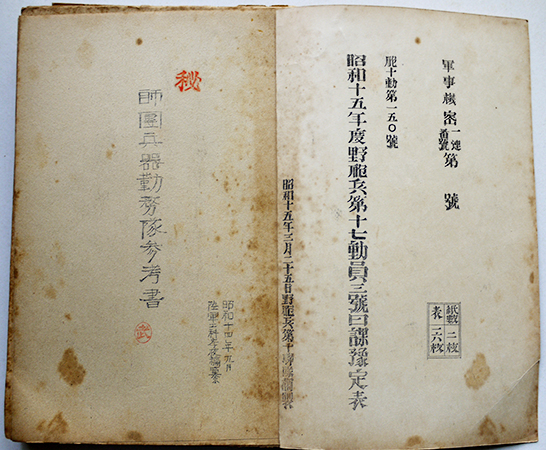 軍事機密 一連番號 第 號
砲十動第一五〇號
昭和十五年度野砲兵第十七動員三號日課豫定表
紙數 二枚
表 二六枚
昭和十五年三月二十五日野砲兵第十
秘
師團兵器勤務隊參考書
昭和十四年九月
陸軍